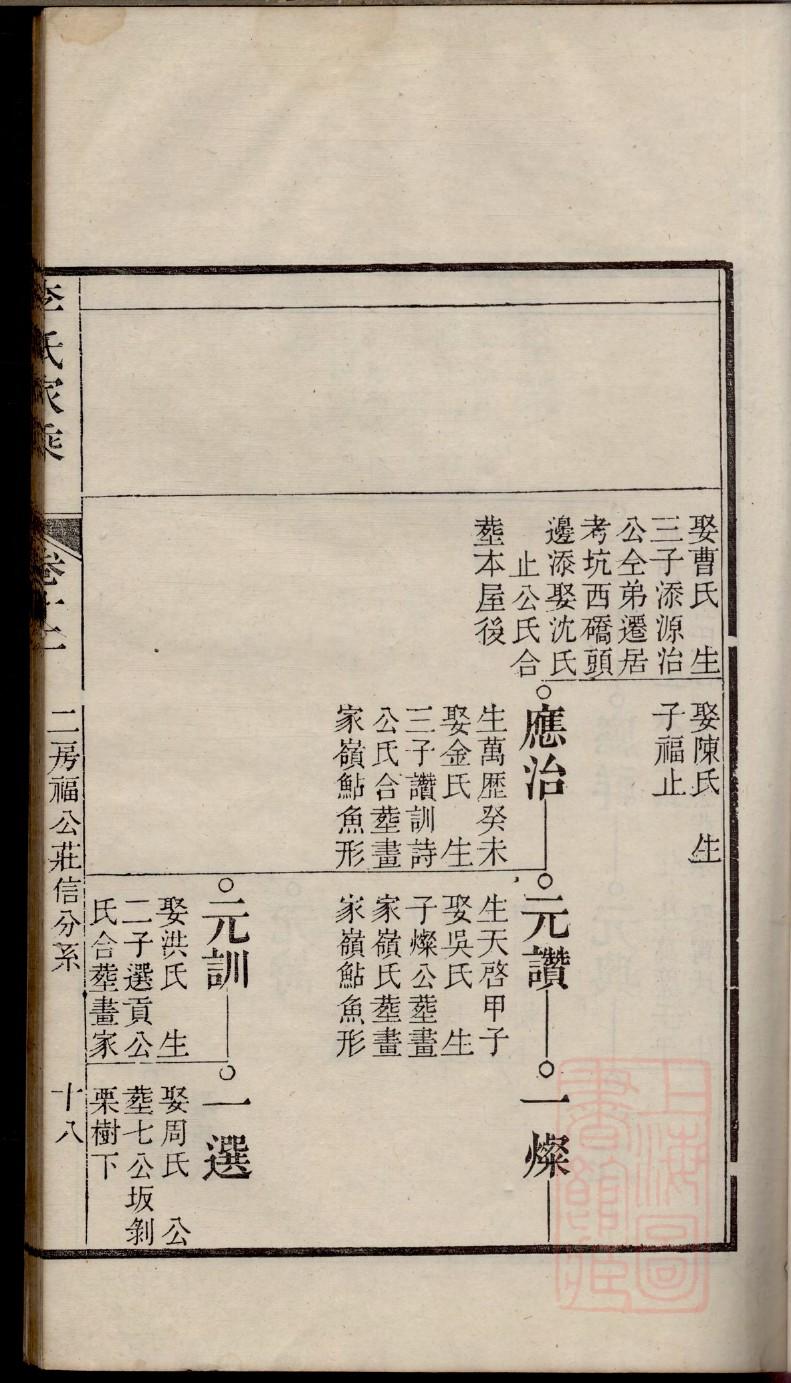 娶曹氏 生
三子添源治
公仝弟遷居
考坑西礄頭
邊添娶沈氏
止公氏合
塟本屋後
娶陳氏 生
子福止
應治
生萬歷癸未
娶金氏 生
三子讚訓詩
公氏合塟畫
家嶺鮎魚形
元讚
生天啓甲子
娶吳氏 生
子燦公塟畫
家嶺氏塟畫
家嶺鮎魚形
一燦
元訓
娶洪氏 生
二子選貢公
氏合塟畫家
一選
娶周氏 公
塟七公坂剝
栗樹下
李氏家乘
卷十二
二房福公莊信分系
十八
上海圖書館藏